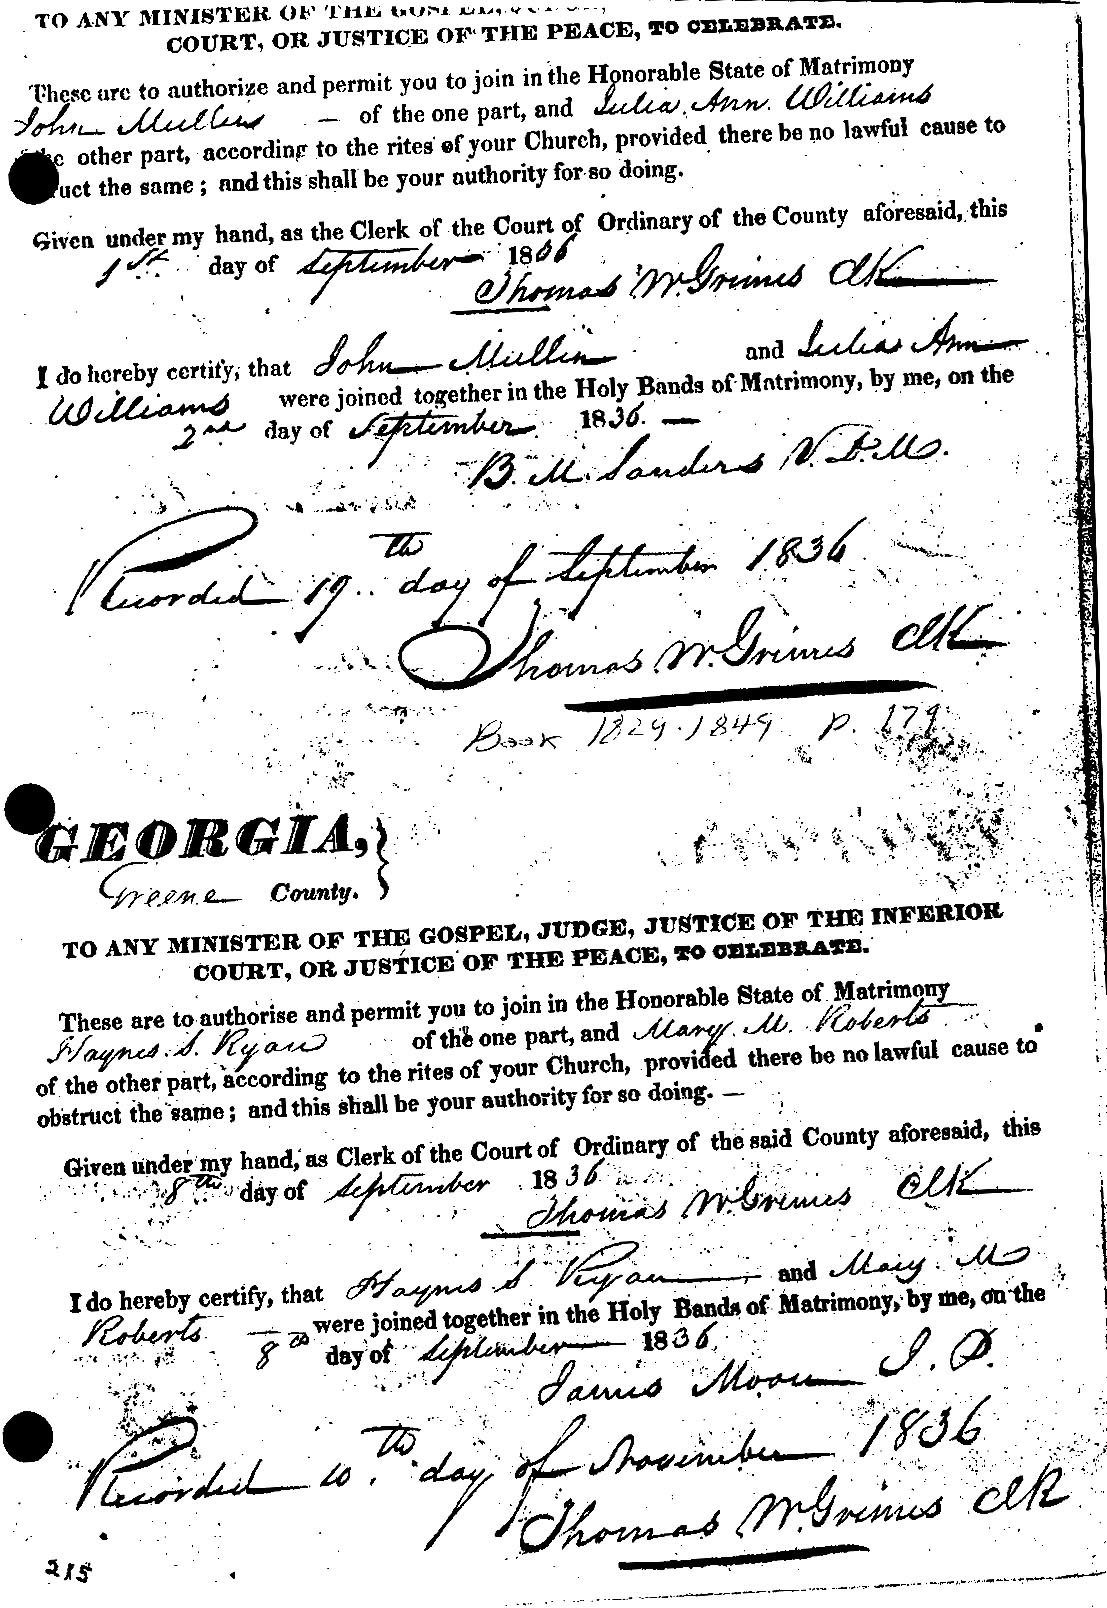 TO ANY MINISTER OF THE GOSPEL,
COURT, OR JUSTICE OF THE PEACE, TO CELEBRATE.
These are to authorize and permit you to join in the Honorable State of Matrimony
John Mullins — of the one part, and Julia Ann Williams
the other part, according to the rites of your Church, provided there be no lawful cause to
ruct the same; and this shall be your authority for so doing.
Given under my hand, as the Clerk of the Court of Ordinary of the County aforesaid, this
1st day of September 1836
Thomas W. Grimes Clk
I do hereby certify, that John Mullin and Julia Ann
Williams were joined together in the Holy Bands of Matrimony, by me, on the
2nd day of September 1836. —
B. M. Sanders V. D. M.
Recorded 19th day of September 1836
Thomas W. Grimes Clk
Book 1829-1849 p. 179
GEORGIA,
Greene County.
TO ANY MINISTER OF THE GOSPEL, JUDGE, JUSTICE OF THE INFERIOR
COURT, OR JUSTICE OF THE PEACE, TO CELEBRATE.
These are to authorise and permit you to join in the Honorable State of Matrimony
Haynes S. Ryan of the one part, and Mary M. Roberts
of the other part, according to the rites of your Church, provided there be no lawful cause to
obstruct the same; and this shall be your authority for so doing. —
Given under my hand, as Clerk of the Court of Ordinary of the said County aforesaid, this
8th day of September 1836
Thomas W. Grimes Clk
I do hereby certify, that Haynes S Ryan and Mary M
Roberts — were joined together in the Holy Bands of Matrimony, by me, on the
8th day of September 1836.
James Moore J. P.
Recorded 10th day of November 1836
Thomas W. Grimes Clk
215